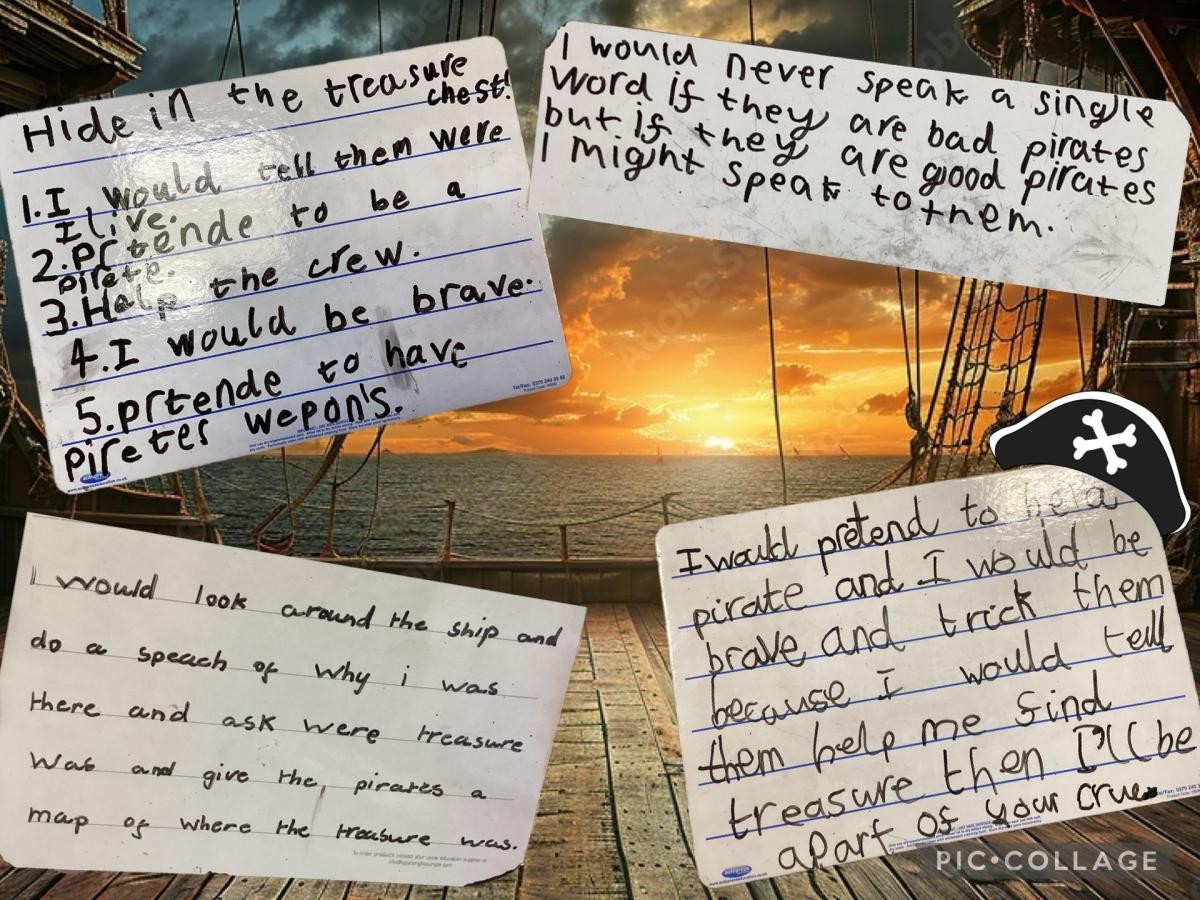 Hide in the treasure
chest!
1. I would tell them were
I live.
2. prtende to be a
pirete.
3. Help the crew.
4. I would be brave.
5. prtende to have
piretes wepon's.
I would never speak a single
word if they are bad pirates
but if they are good pirates
I might speak to them.
I would look around the ship and
do a speach of why i was
there and ask were treasure
was and give the pirates a
map of where the treasure was.
I would pretend to be a
pirate and I would be
brave and trick them
because I would tell
them help me find
treasure then I'll be
apart of your crue
PIC•COLLAGE